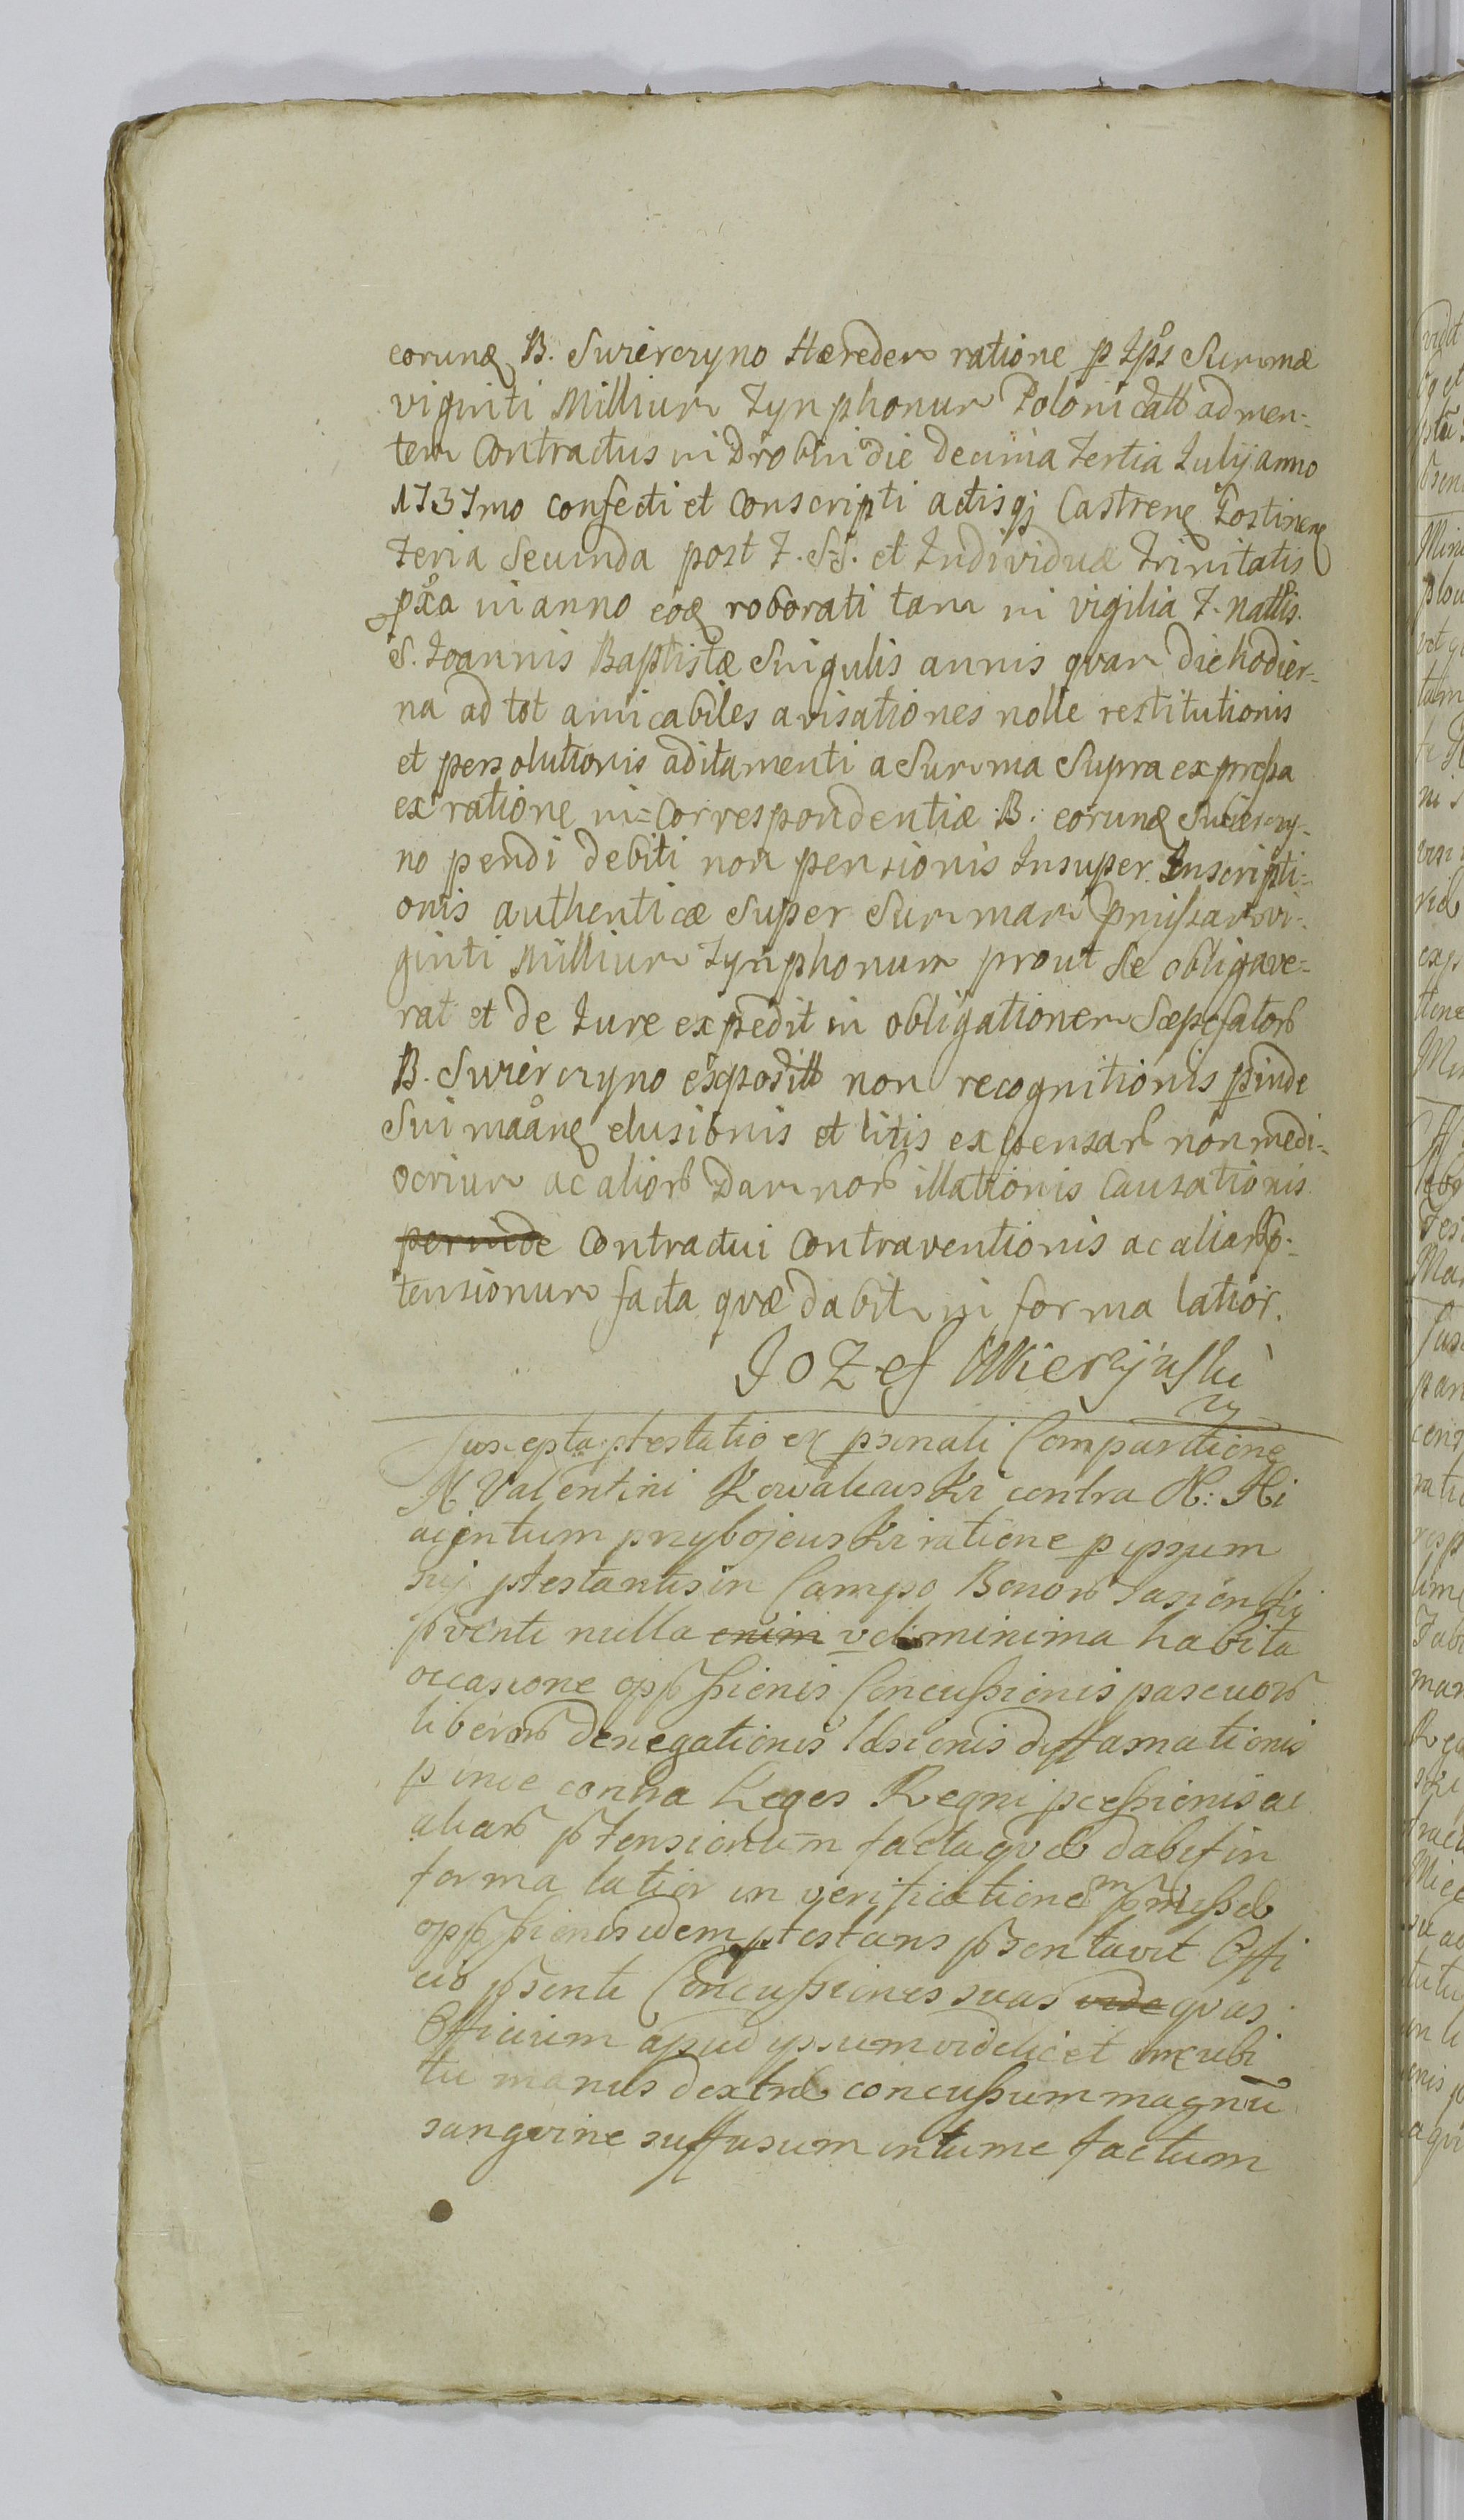 eorunq B. Swierczyno Hæredem ratione p Ips Summæ
viginti Millium Tynphonum Polonicall ad men-
tem Contractus in Drobin die decima Tertia Julij anno
1737mo confecti et conscripti actisqj Castrenq Gostinenq
Feria Secunda post F. S-S. et Individuæ Trinitatis
pxa in anno eoq roborati tam in vigilia F. Nattis
S. Joannis Baptistæ Singulis annis quam die hodier-
na ad tot amicabiles avisationes nolle restitutionis
et persolutionis aditamenti a Summa Supra expressa
ex ratione in=Correspondentiæ B. eorunq Swierczy-
no pendi debiti non pensionis Insuper Inscripti-
onis authenticæ Super Summam pmissam vi-
ginti Millium Tynphonum prout Se obligave-
rat et de Jure expedit in obligationem Sæpefator
B. Swierczyno exposit non recognitionis pinde
Sui maanq elusionis et litis expensar non medi-
ocrium ac alior Damnor illationis Causationis
perinde Contractui Contraventionis ac aliar p-
tensionum facta quæ dabit in forma latior.
Jozef Mierzjuski
Suscepta ptestatio ex psonali Comparitione
N Valentini Kowalewski contra N: Hi
acintum przybojewski ratione p ipsum
sij ptestantis in Campo Bonor Jasien
pventi nulla enim vel minima habita
occasione oppssionis Concussionis pascuor
liberar denegationis læsionis diffamationis
pinde contra Leges Regni pcessionis ac
aliar ptensionum facta quæ dabit in
forma latior in verificationem pmissæ
oppssionis idem ptestans psentavit Offi
cio psenti Concussiones suas vide quas
Officium apud ipsum videlicet in cubi
tu manus dextræ concussum magnū
sangvine suffusum intume factum